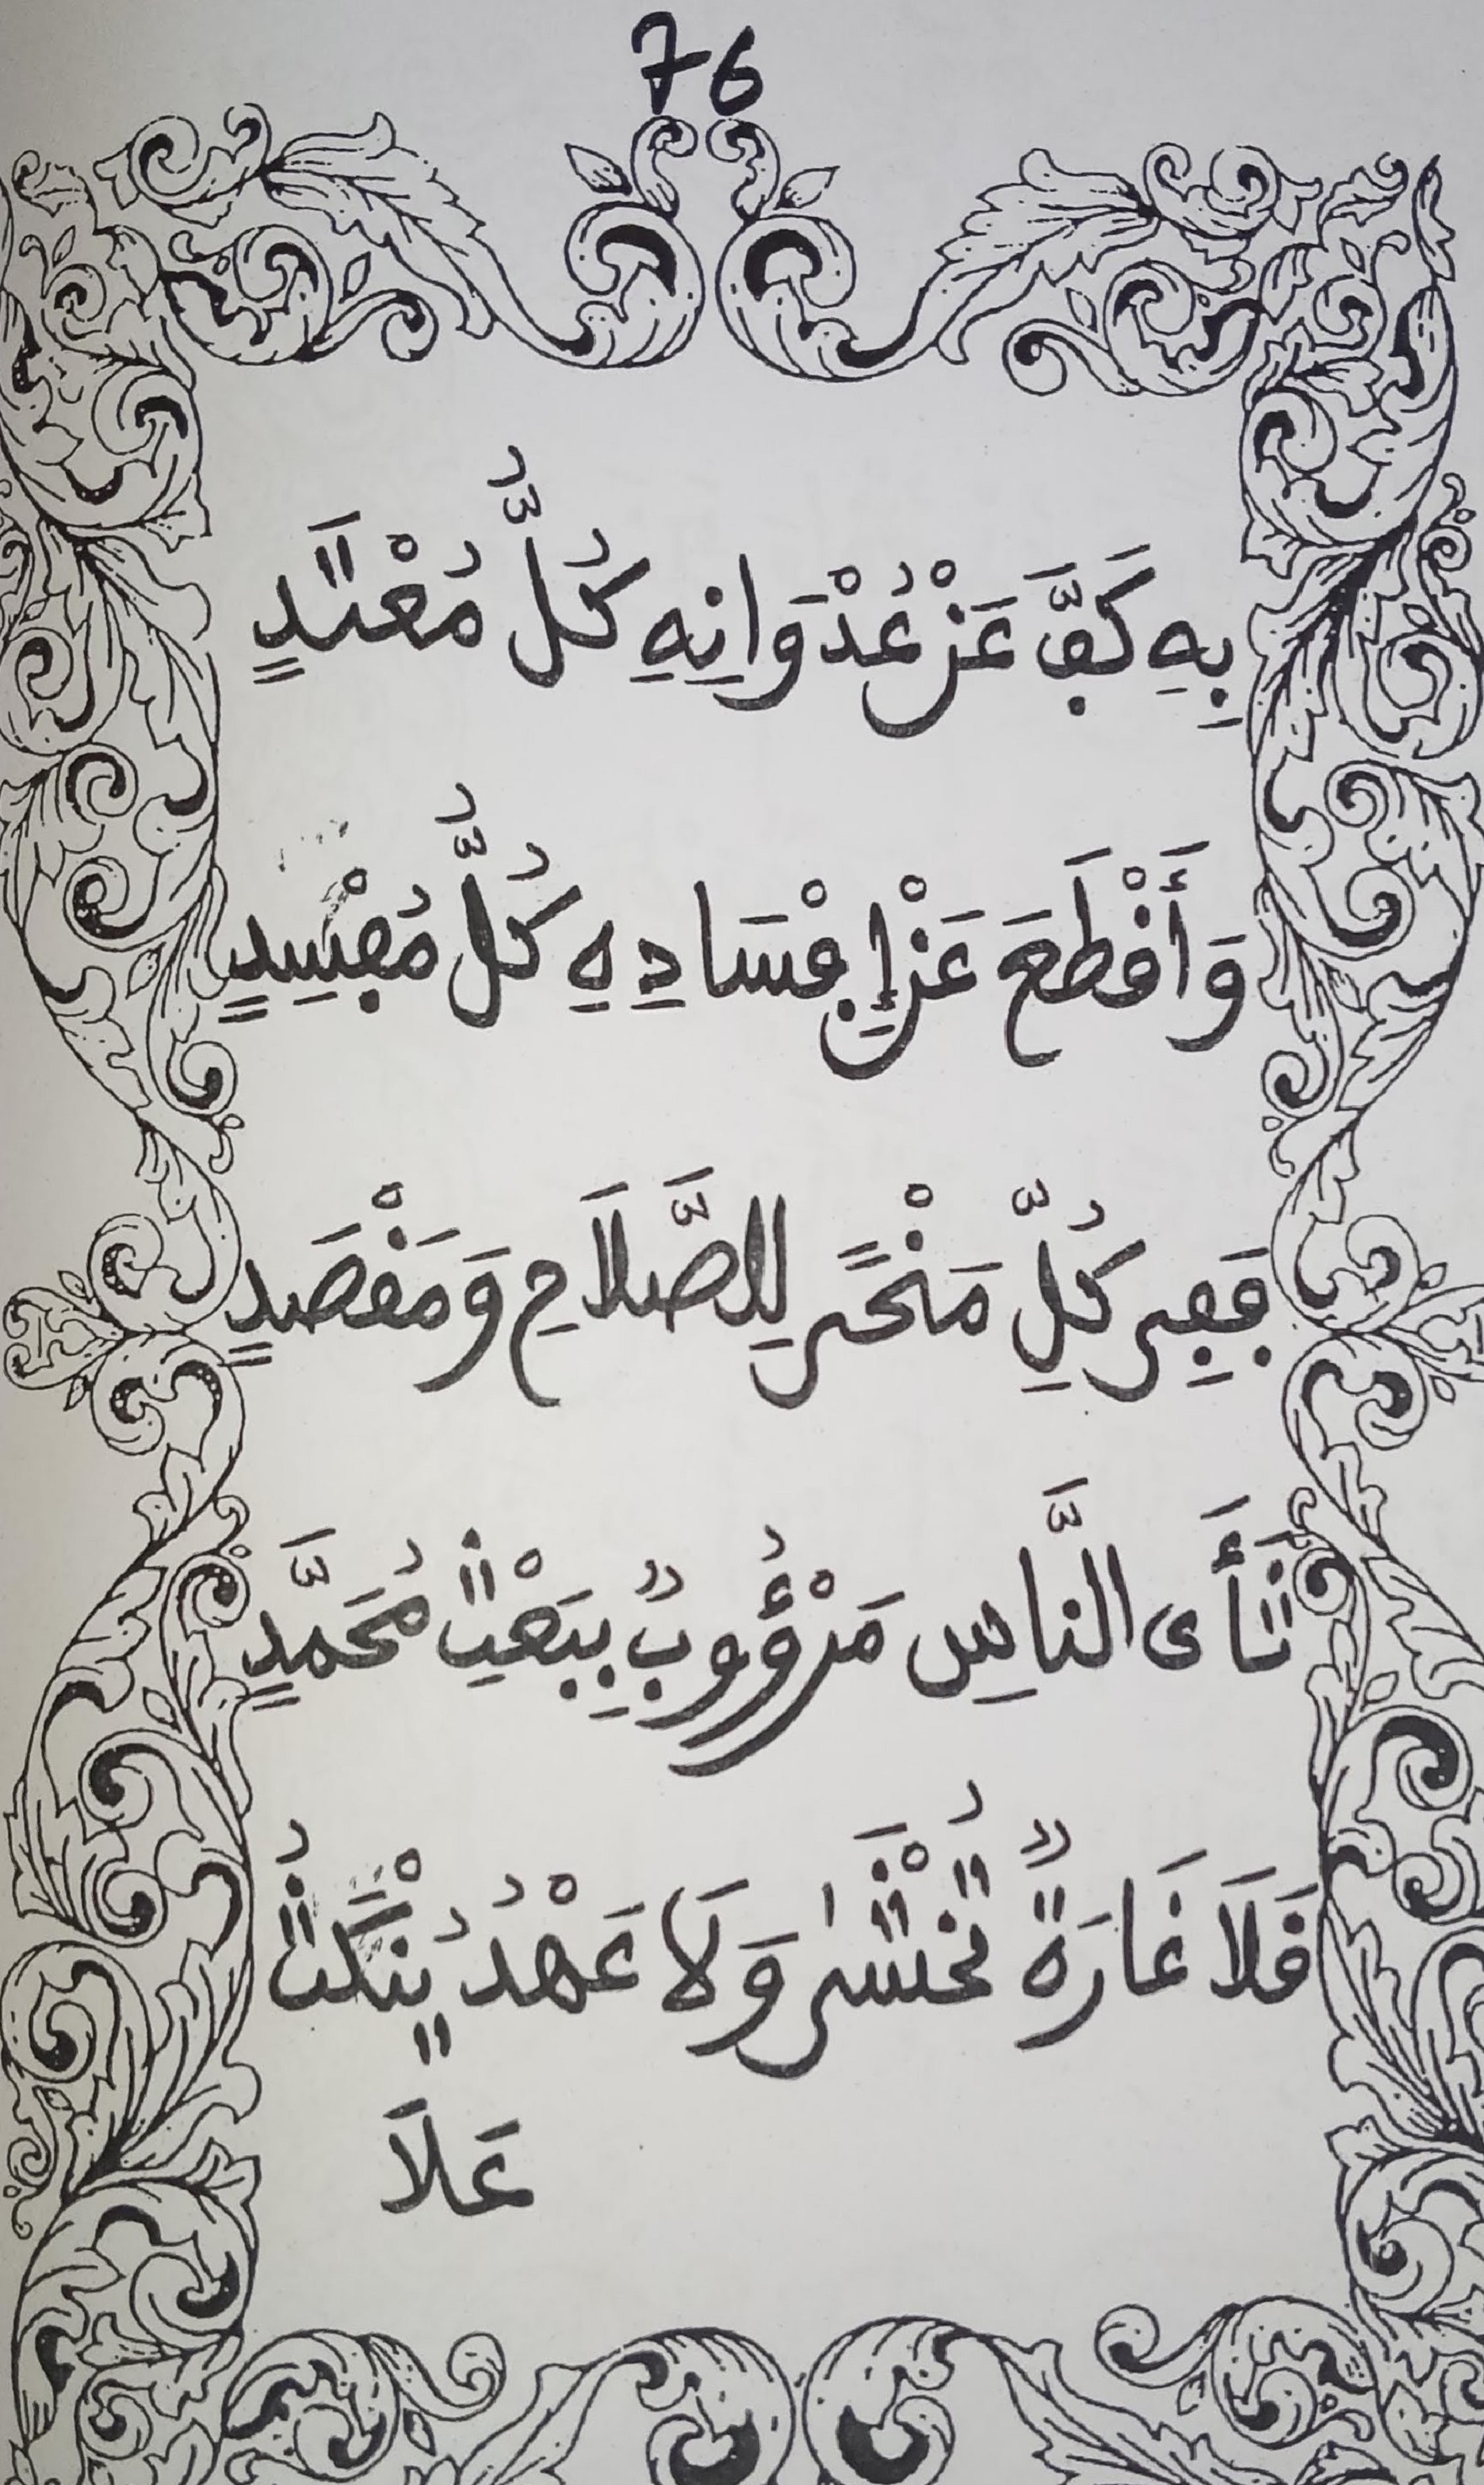 76
بِهِ كَفَّ عَنْ عُدْوَانِهِ كُلُّ مُعْتَدٍ
وَأَقْطَعَ عَنْ إِفْسَادِهِ كُلُّ مُفْسِدٍ
فَفِي كُلِّ مَنْحًى لِلصَّلَاحِ وَمَقْصَدٍ
ثَأَى النَّاسِ مَرْؤُوبٌ بِبَعْثِ مُحَمَّدٍ
فَلَا غَارَةٌ تُخْشَى وَلَا عَهْدُ يُنْكَثُ
عَلَا